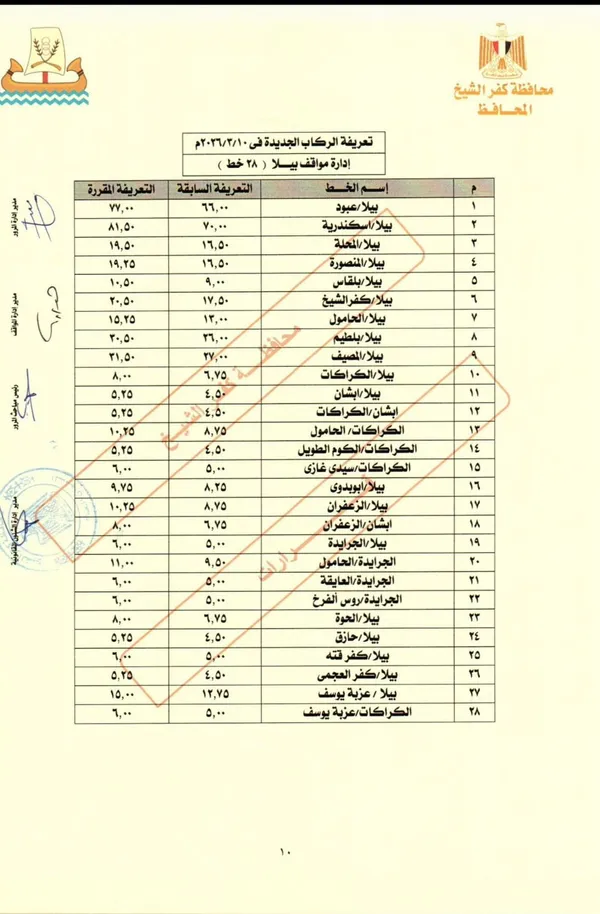 محافظة كفر الشيخ
المحافظ
تعريفة الركاب الجديدة فى ٢٠٢٦/٣/١٠م
إدارة مواقف بيلا ( ٢٨ خط )
م إسم الخط التعريفة السابقة التعريفة المقررة
١ بيلا/عبود ٦٦,٠٠ ٧٧,٠٠
٢ بيلا/اسكندرية ٧٠,٠٠ ٨١,٥٠
٣ بيلا/المحلة ١٦,٥٠ ١٩,٥٠
٤ بيلا/المنصورة ١٦,٥٠ ١٩,٢٥
٥ بيلا/بلقاس ٩,٠٠ ١٠,٥٠
٦ بيلا/كفرالشيخ ١٧,٥٠ ٢٠,٥٠
٧ بيلا/الحامول ١٣,٠٠ ١٥,٢٥
٨ بيلا/بلطيم ٢٦,٠٠ ٣٠,٥٠
٩ بيلا/المصيف ٢٧,٠٠ ٣١,٥٠
١٠ بيلا/الكراكات ٦,٧٥ ٨,٠٠
١١ بيلا/ابشان ٤,٥٠ ٥,٢٥
١٢ ابشان/الكراكات ٤,٥٠ ٥,٢٥
١٣ الكراكات/ الحامول ٨,٧٥ ١٠,٢٥
١٤ الكراكات/الكوم الطويل ٤,٥٠ ٥,٢٥
١٥ الكراكات/سيدى غازى ٥,٠٠ ٦,٠٠
١٦ بيلا/ابوبدوى ٨,٢٥ ٩,٧٥
١٧ بيلا/الزعفران ٨,٧٥ ١٠,٢٥
١٨ ابشان/الزعفران ٦,٧٥ ٨,٠٠
١٩ بيلا/الجرايدة ٥,٠٠ ٦,٠٠
٢٠ الجرايدة/الحامول ٩,٥٠ ١١,٠٠
٢١ الجرايدة/العايقة ٥,٠٠ ٦,٠٠
٢٢ الجرايدة/روس ألفرخ ٥,٠٠ ٦,٠٠
٢٣ بيلا/الحوة ٦,٧٥ ٨,٠٠
٢٤ بيلا/حازق ٤,٥٠ ٥,٢٥
٢٥ بيلا/كفر قته ٥,٠٠ ٦,٠٠
٢٦ بيلا/كفر العجمى ٤,٥٠ ٥,٢٥
٢٧ بيلا / عزبة يوسف ١٢,٧٥ ١٥,٠٠
٢٨ الكراكات/عزبة يوسف ٥,٠٠ ٦,٠٠
محافظة كفر الشيخ
مدير ادارة المرور
مدير ادارة المواقف
رئيس مباحث المرور
مدير ادارة الشئون القانونية
١٠